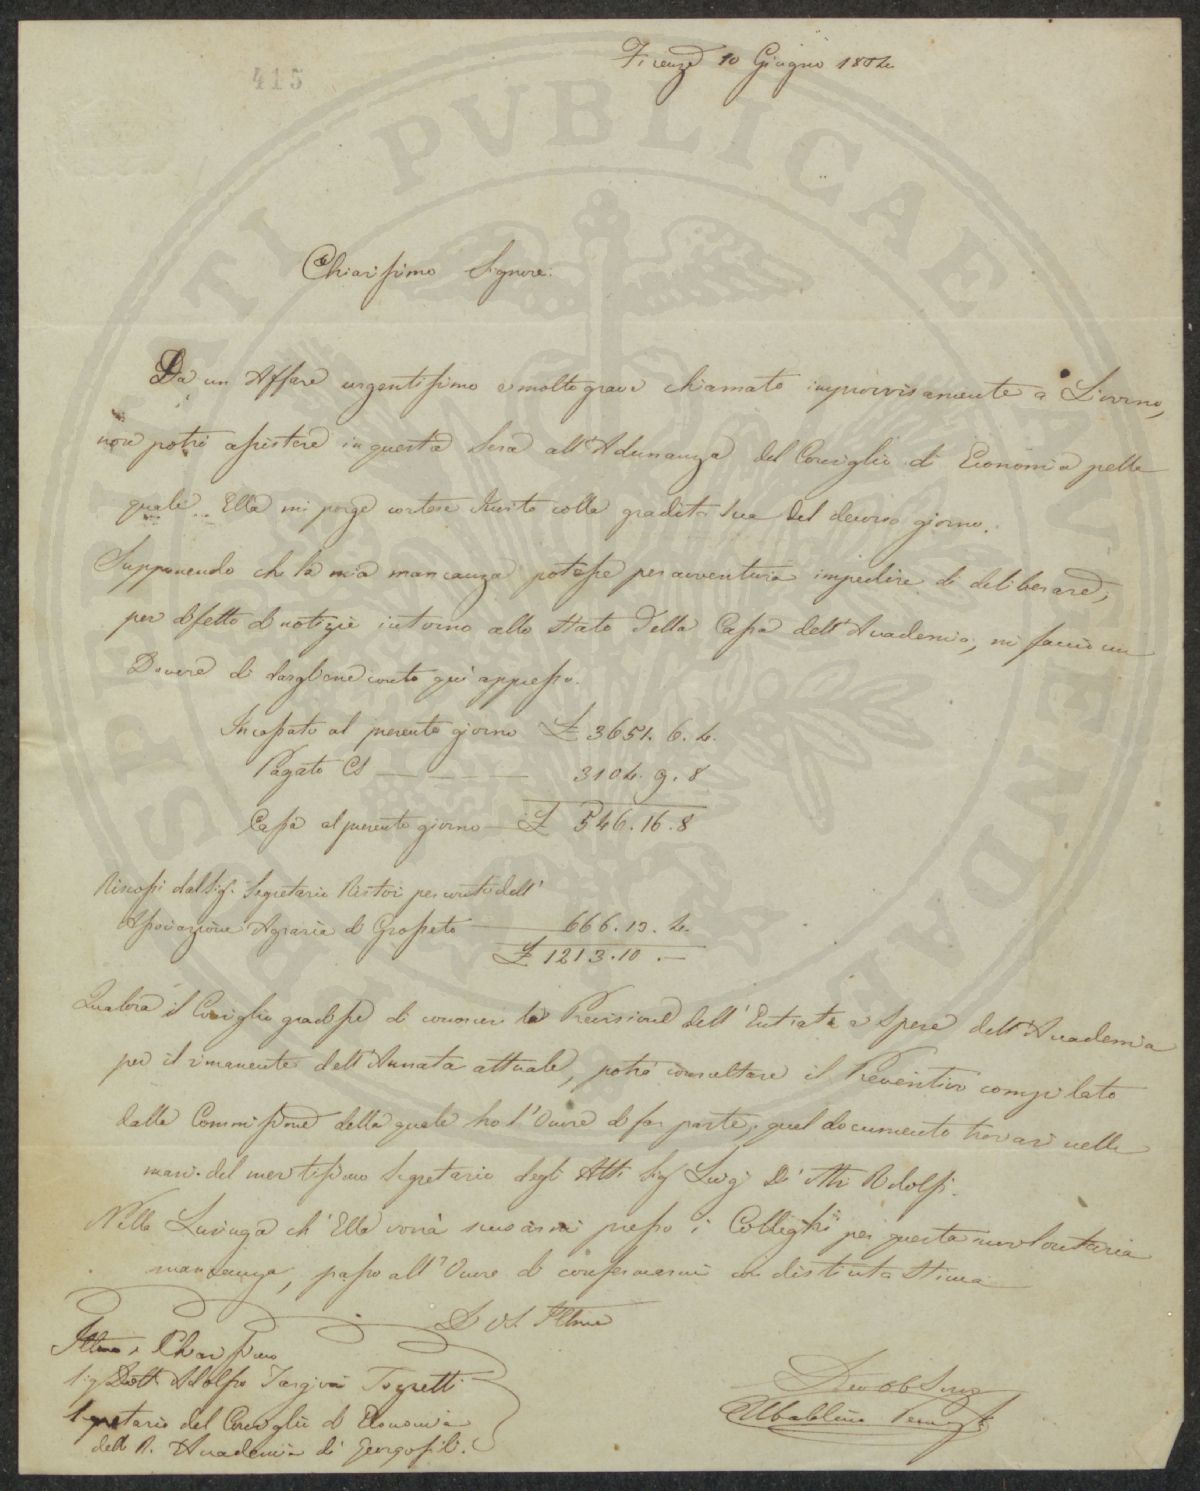 415
Firenze 10 Giugno 1854
Chiarissimo Signore.
Da un Affare urgentissimo e molto grave chiamato improvvisamente a Livorno,
non potrò assistere in questa Sera all'Adunanza del Consiglio di Economia pella
quale Ella mi porge cortese Invito colla gradita Sua del decorso giorno.
Supponendo che la mia mancanza potesse per avventura impedire di deliberare,
per difetto di notizie intorno allo Stato della Cassa dell'Accademia, mi faccio un
Dovere di dargliene conto qui appresso.
Incassato al presente giorno £ 3651. 6. 4.
Pagato 3104. 9. 8
Cassa al presente giorno £ 546. 16. 8
Riscossi dal Sig. Segretario Ristori per conto dell'
Associazione Agraria di Grosseto 666. 13. 4.
£ 1213. 10. —
Qualora il Consiglio gradisse di conoscere la Previsione dell'Entrata e Spesa dell'Accademia
per il rimanente dell'Annata attuale, potrà consultare il Preventivo compilato
dalla Commissione della quale ho l'Onore di far parte, quel documento trovasi nelle
mani del meritissimo Segretario degli Atti Sig Luigi De' Ridolfi.
Nella Lusinga ch'Ella vorrà scusarmi presso i Colleghi per questa involontaria
mancanza, passo all'Onore di confermarmi con distinta Stima
Di VS. Illma
Illmo e Chiarissimo
Sig Dott. Adolfo Targioni Tozzetti
Segretario del Consiglio di Economia
della R. Accademia di Georgofili.
Devo Obb Servo
Ubaldino Peruzzi